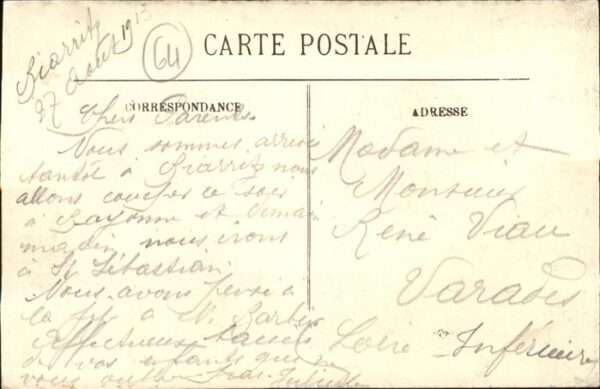 Biarritz
27 Août 1913
64
CARTE POSTALE
CORRESPONDANCE
ADRESSE
Chers Parents
Nous sommes arrivé
tantôt à Biarritz nous
allons coucher ce soir
à Bayonne et demain
matin nous irons
à St Sébastian
Nous avons pensé à
la fête à
Affectueux baisers
de vos enfants qui ne
vous oublie pas
Madame et
Monsieur
René Viau
Varades
Loire Inférieure